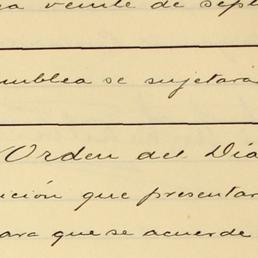 veinte de sep
mblea se sujetará
Orden del Día
ición que presentar
ara que se acuerde